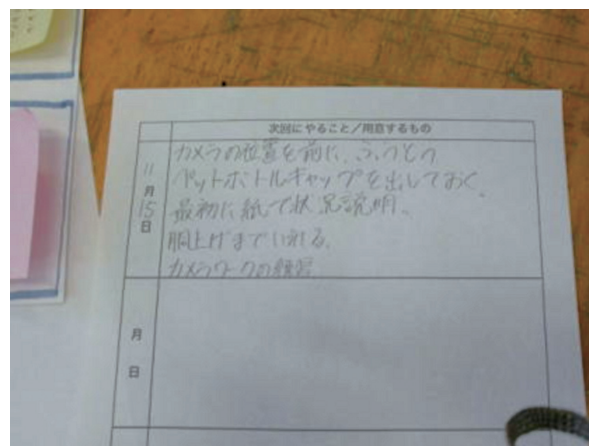 次回にやること／用意するもの
11月15日
カメラの位置を前に、ふつうの
ペットボトルキャップを出しておく。
最初に紙で状況説明。
胴上げまでいれる。
カメラワークの練習
月
日